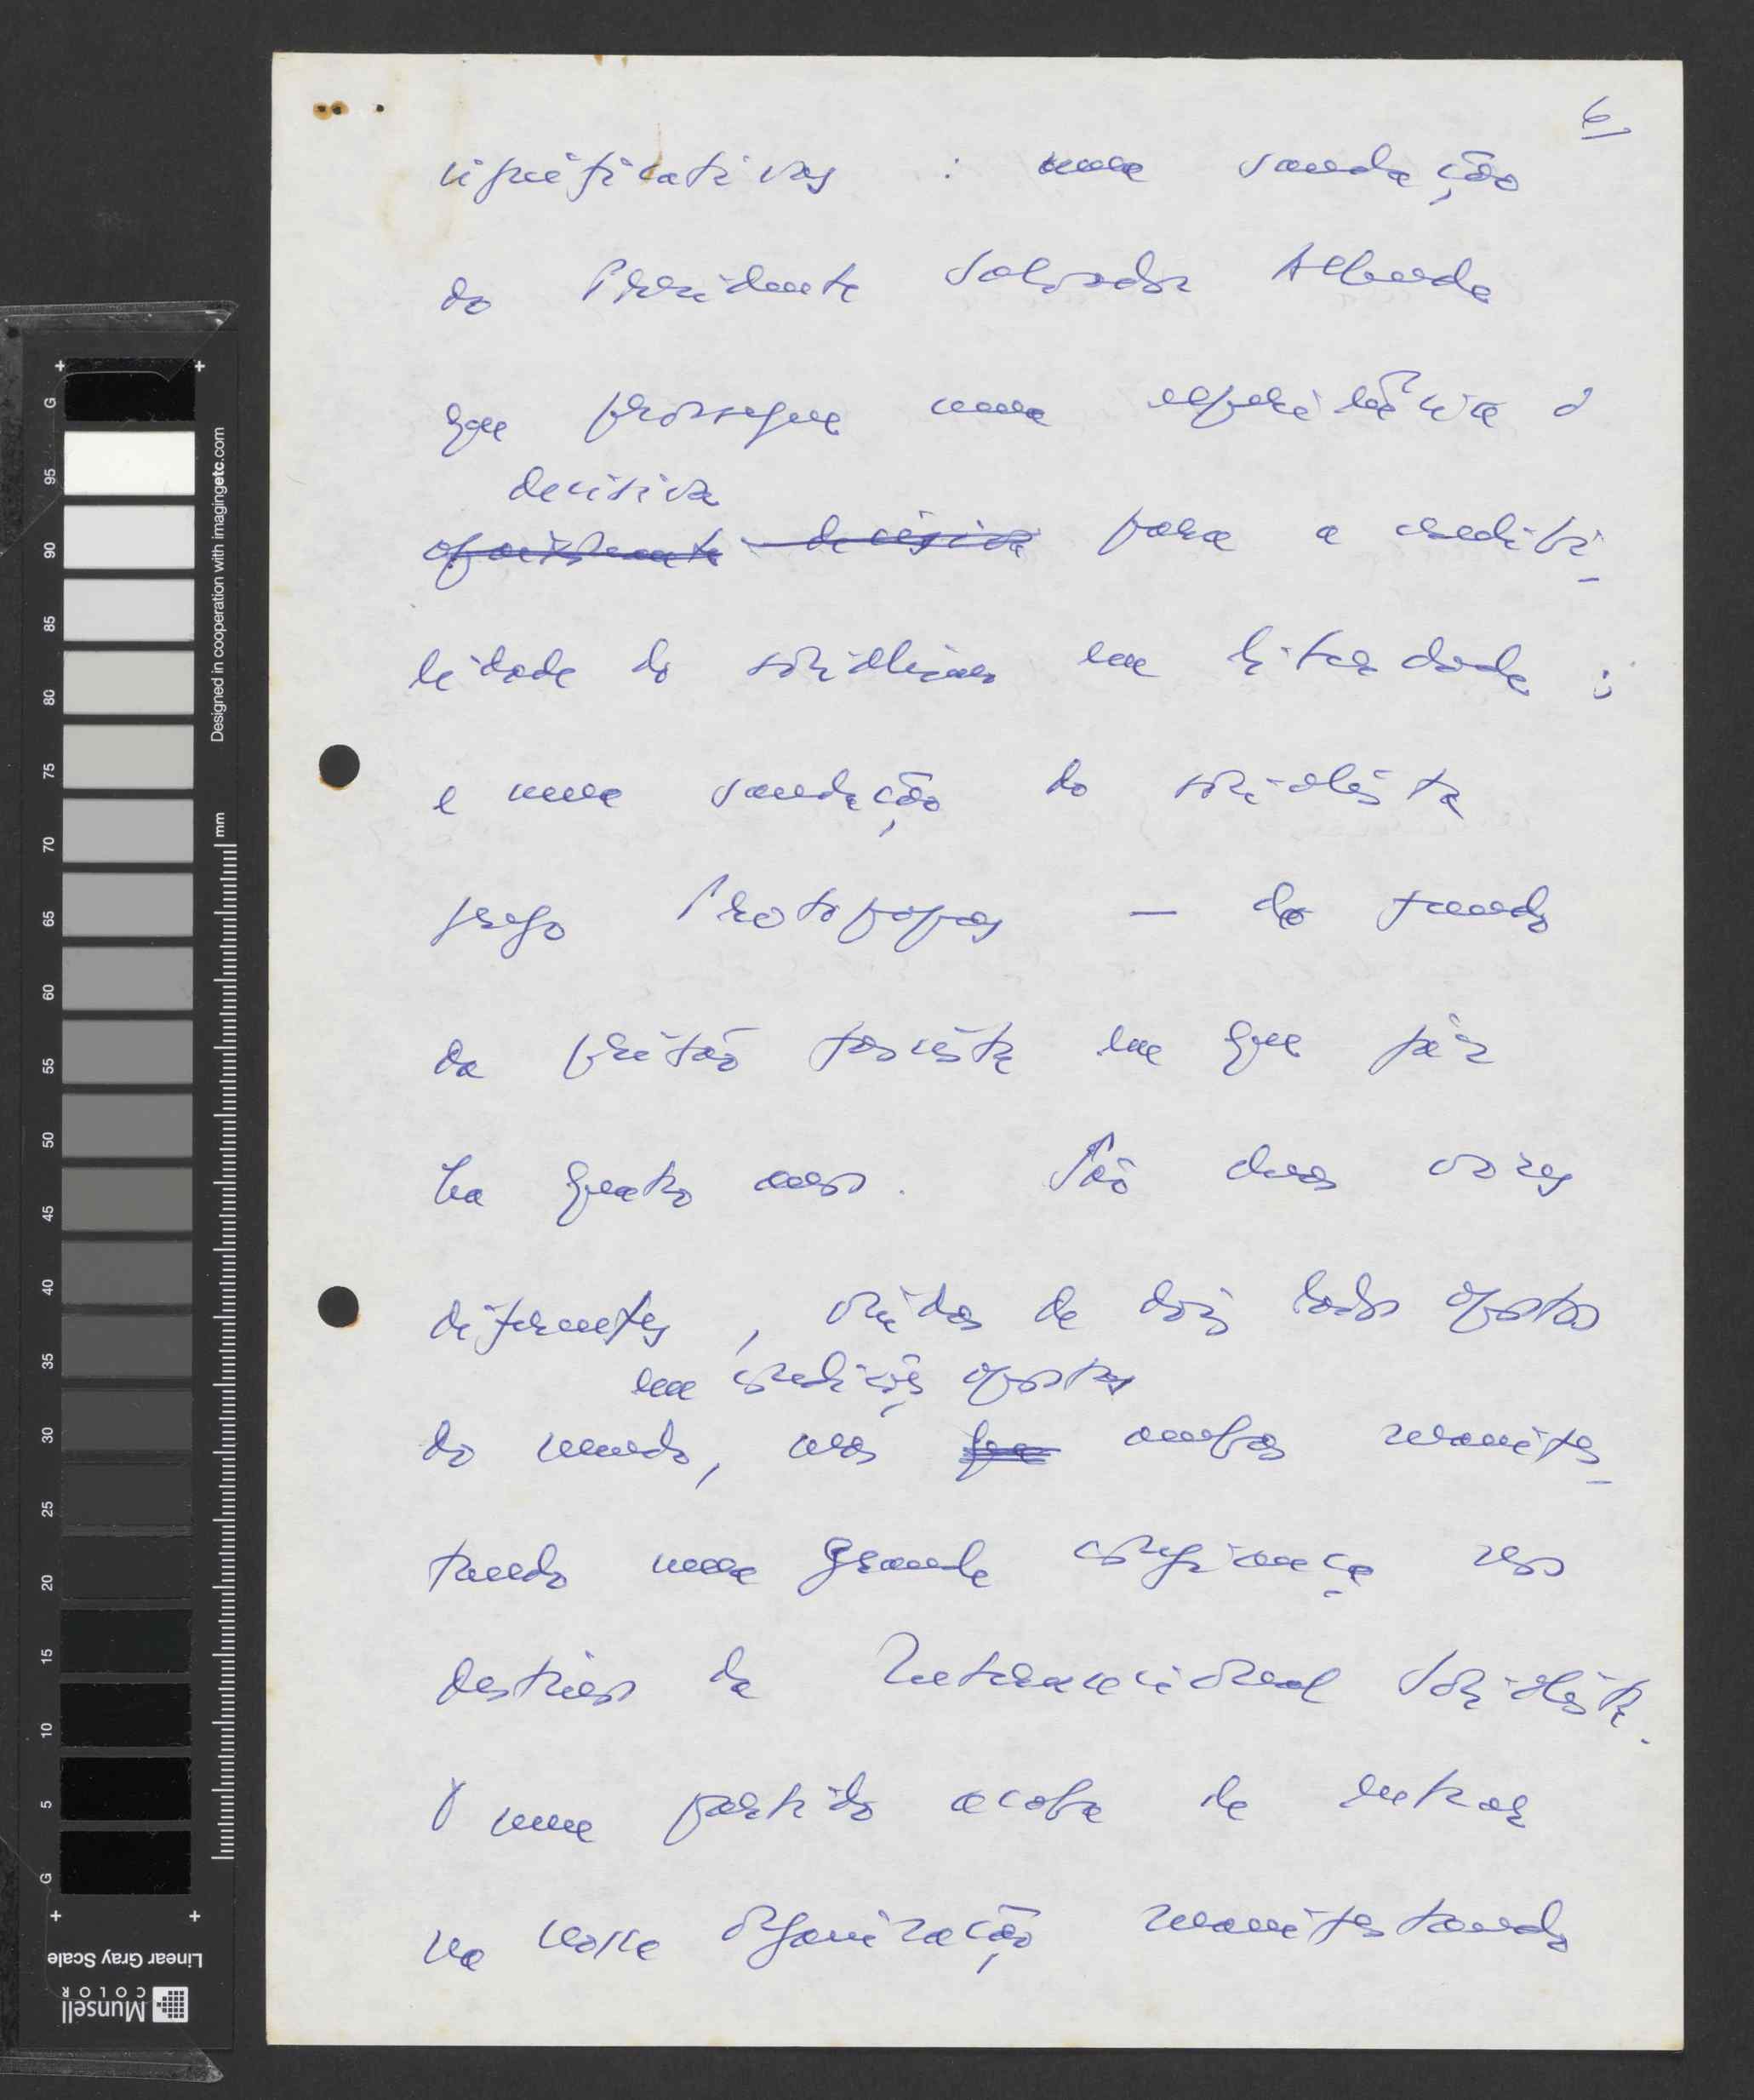 6
significativas : uma saudação
do Presidente Salvador Allende
que prossegue uma experiência
decisiva
para a credibi-
lidade do socialismo em liberdade ;
e uma saudação do socialista
grego Protopapas — do fundo
da prisão fascista em que jaz
ha quatro anos. São duas vozes
diferentes, vindas de dois lados opostos
em condições opostas
do mundo, mas ambas manifes-
tando uma grande confiança nos
destinos da Internacional Socialista.
E um partido acaba de entrar
na nossa organização manifestando
G 95 90 85 80 75 70 65 60 55 50 45 40 35 30 25 20 15 10 5 G
Designed in cooperation with imagingetc.com
mm
Linear Gray Scale
Munsell
COLOR